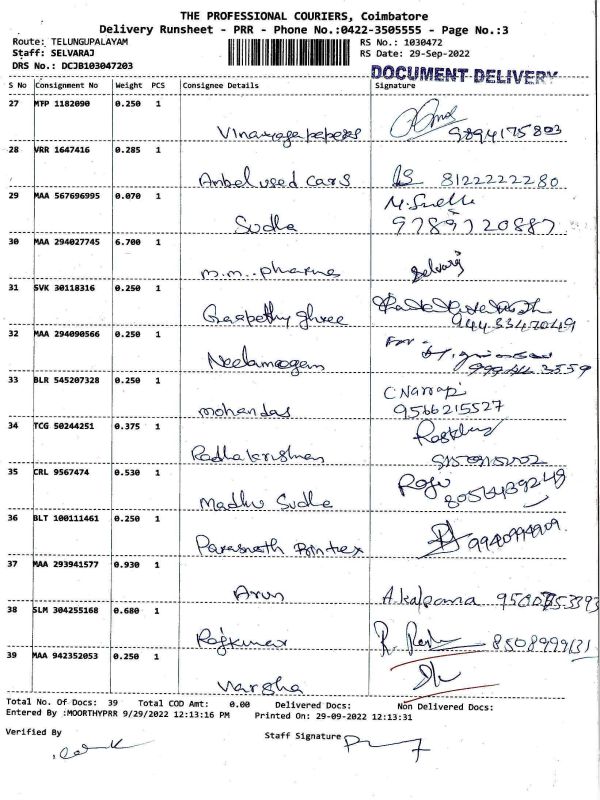 THE PROFESSIONAL COURIERS, Coimbatore
Delivery Runsheet - PRR - Phone No.:0422-3505555 - Page No.:3
Route: TELUNGUPALAYAM RS No.: 1030472
Staff: SELVARAJ RS Date: 29-Sep-2022
DRS No.: DCJB103047203 DOCUMENT DELIVERY
S No Consignment No Weight PCS Consignee Details Signature
27 MTP 1182090 0.250 1
9894175803
28 VRR 1647416 0.285 1
Anbel used cars 8122222280
29 MAA 567696995 0.070 1
Sudha 9789720887
30 MAA 294027745 6.700 1
m.m. pharma Selvaraj
31 SVK 30118316 0.250 1
32 MAA 294090566 0.250 1
33 BLR 545207328 0.250 1
mohandas 9566215527
34 TCG 50244251 0.375 1
Radhakrishnan
35 CRL 9567474 0.530 1
Madhu Sudha
36 BLT 100111461 0.250 1
Parasnath Printex
37 MAA 293941577 0.930 1
Arun A.kalpana
38 SLM 304255168 0.680 1
Rajkumar 8508999131
39 MAA 942352053 0.250 1
Varsha
Total No. Of Docs: 39 Total COD Amt: 0.00 Delivered Docs: Non Delivered Docs:
Entered By :MOORTHYPRR 9/29/2022 12:13:16 PM Printed On: 29-09-2022 12:13:31
Verified By Staff Signature